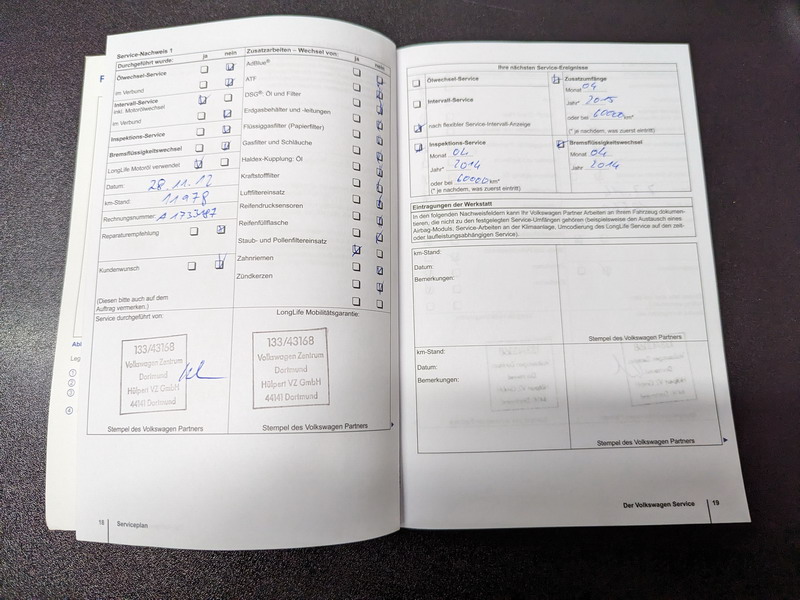 Service-Nachweis 1
Durchgeführt wurde: ja nein
Ölwechsel-Service
im Verbund
Intervall-Service
inkl. Motorölwechsel
im Verbund
Inspektions-Service
Bremsflüssigkeitswechsel
LongLife Motoröl verwendet
Datum: 28.11.12
km-Stand: 11978
Rechnungsnummer: A 1733187
Reparaturempfehlung
Kundenwunsch
(Diesen bitte auch auf dem
Auftrag vermerken.)
Zusatzarbeiten – Wechsel von: ja nein
AdBlue®
ATF
DSG®: Öl und Filter
Erdgasbehälter und -leitungen
Flüssiggasfilter (Papierfilter)
Gasfilter und Schläuche
Haldex-Kupplung: Öl
Kraftstofffilter
Luftfiltereinsatz
Reifendrucksensoren
Reifenfüllflasche
Staub- und Pollenfiltereinsatz
Zahnriemen
Zündkerzen
Service durchgeführt von:
133/43168
Volkswagen Zentrum
Dortmund
Hülpert VZ GmbH
44141 Dortmund
Stempel des Volkswagen Partners
LongLife Mobilitätsgarantie:
133/43168
Volkswagen Zentrum
Dortmund
Hülpert VZ GmbH
44141 Dortmund
Stempel des Volkswagen Partners
18 Serviceplan
Ihre nächsten Service-Ereignisse
Ölwechsel-Service
Intervall-Service
nach flexibler Service-Intervall-Anzeige
Zusatzumfänge
Monat 04
Jahr* 2015
oder bei 60000 km*
(* je nachdem, was zuerst eintritt)
Inspektions-Service
Monat 04
Jahr* 2014
oder bei 60000 km*
(* je nachdem, was zuerst eintritt)
Bremsflüssigkeitswechsel
Monat 04
Jahr 2014
Eintragungen der Werkstatt
In den folgenden Nachweisfeldern kann Ihr Volkswagen Partner Arbeiten an Ihrem Fahrzeug dokumen-
tieren, die nicht zu den festgelegten Service-Umfängen gehören (beispielsweise den Austausch eines
Airbag-Moduls, Service-Arbeiten an der Klimaanlage, Umcodierung des LongLife Service auf den zeit-
oder laufleistungsabhängigen Service).
km-Stand:
Datum:
Bemerkungen:
Stempel des Volkswagen Partners
km-Stand:
Datum:
Bemerkungen:
Stempel des Volkswagen Partners
Der Volkswagen Service 19